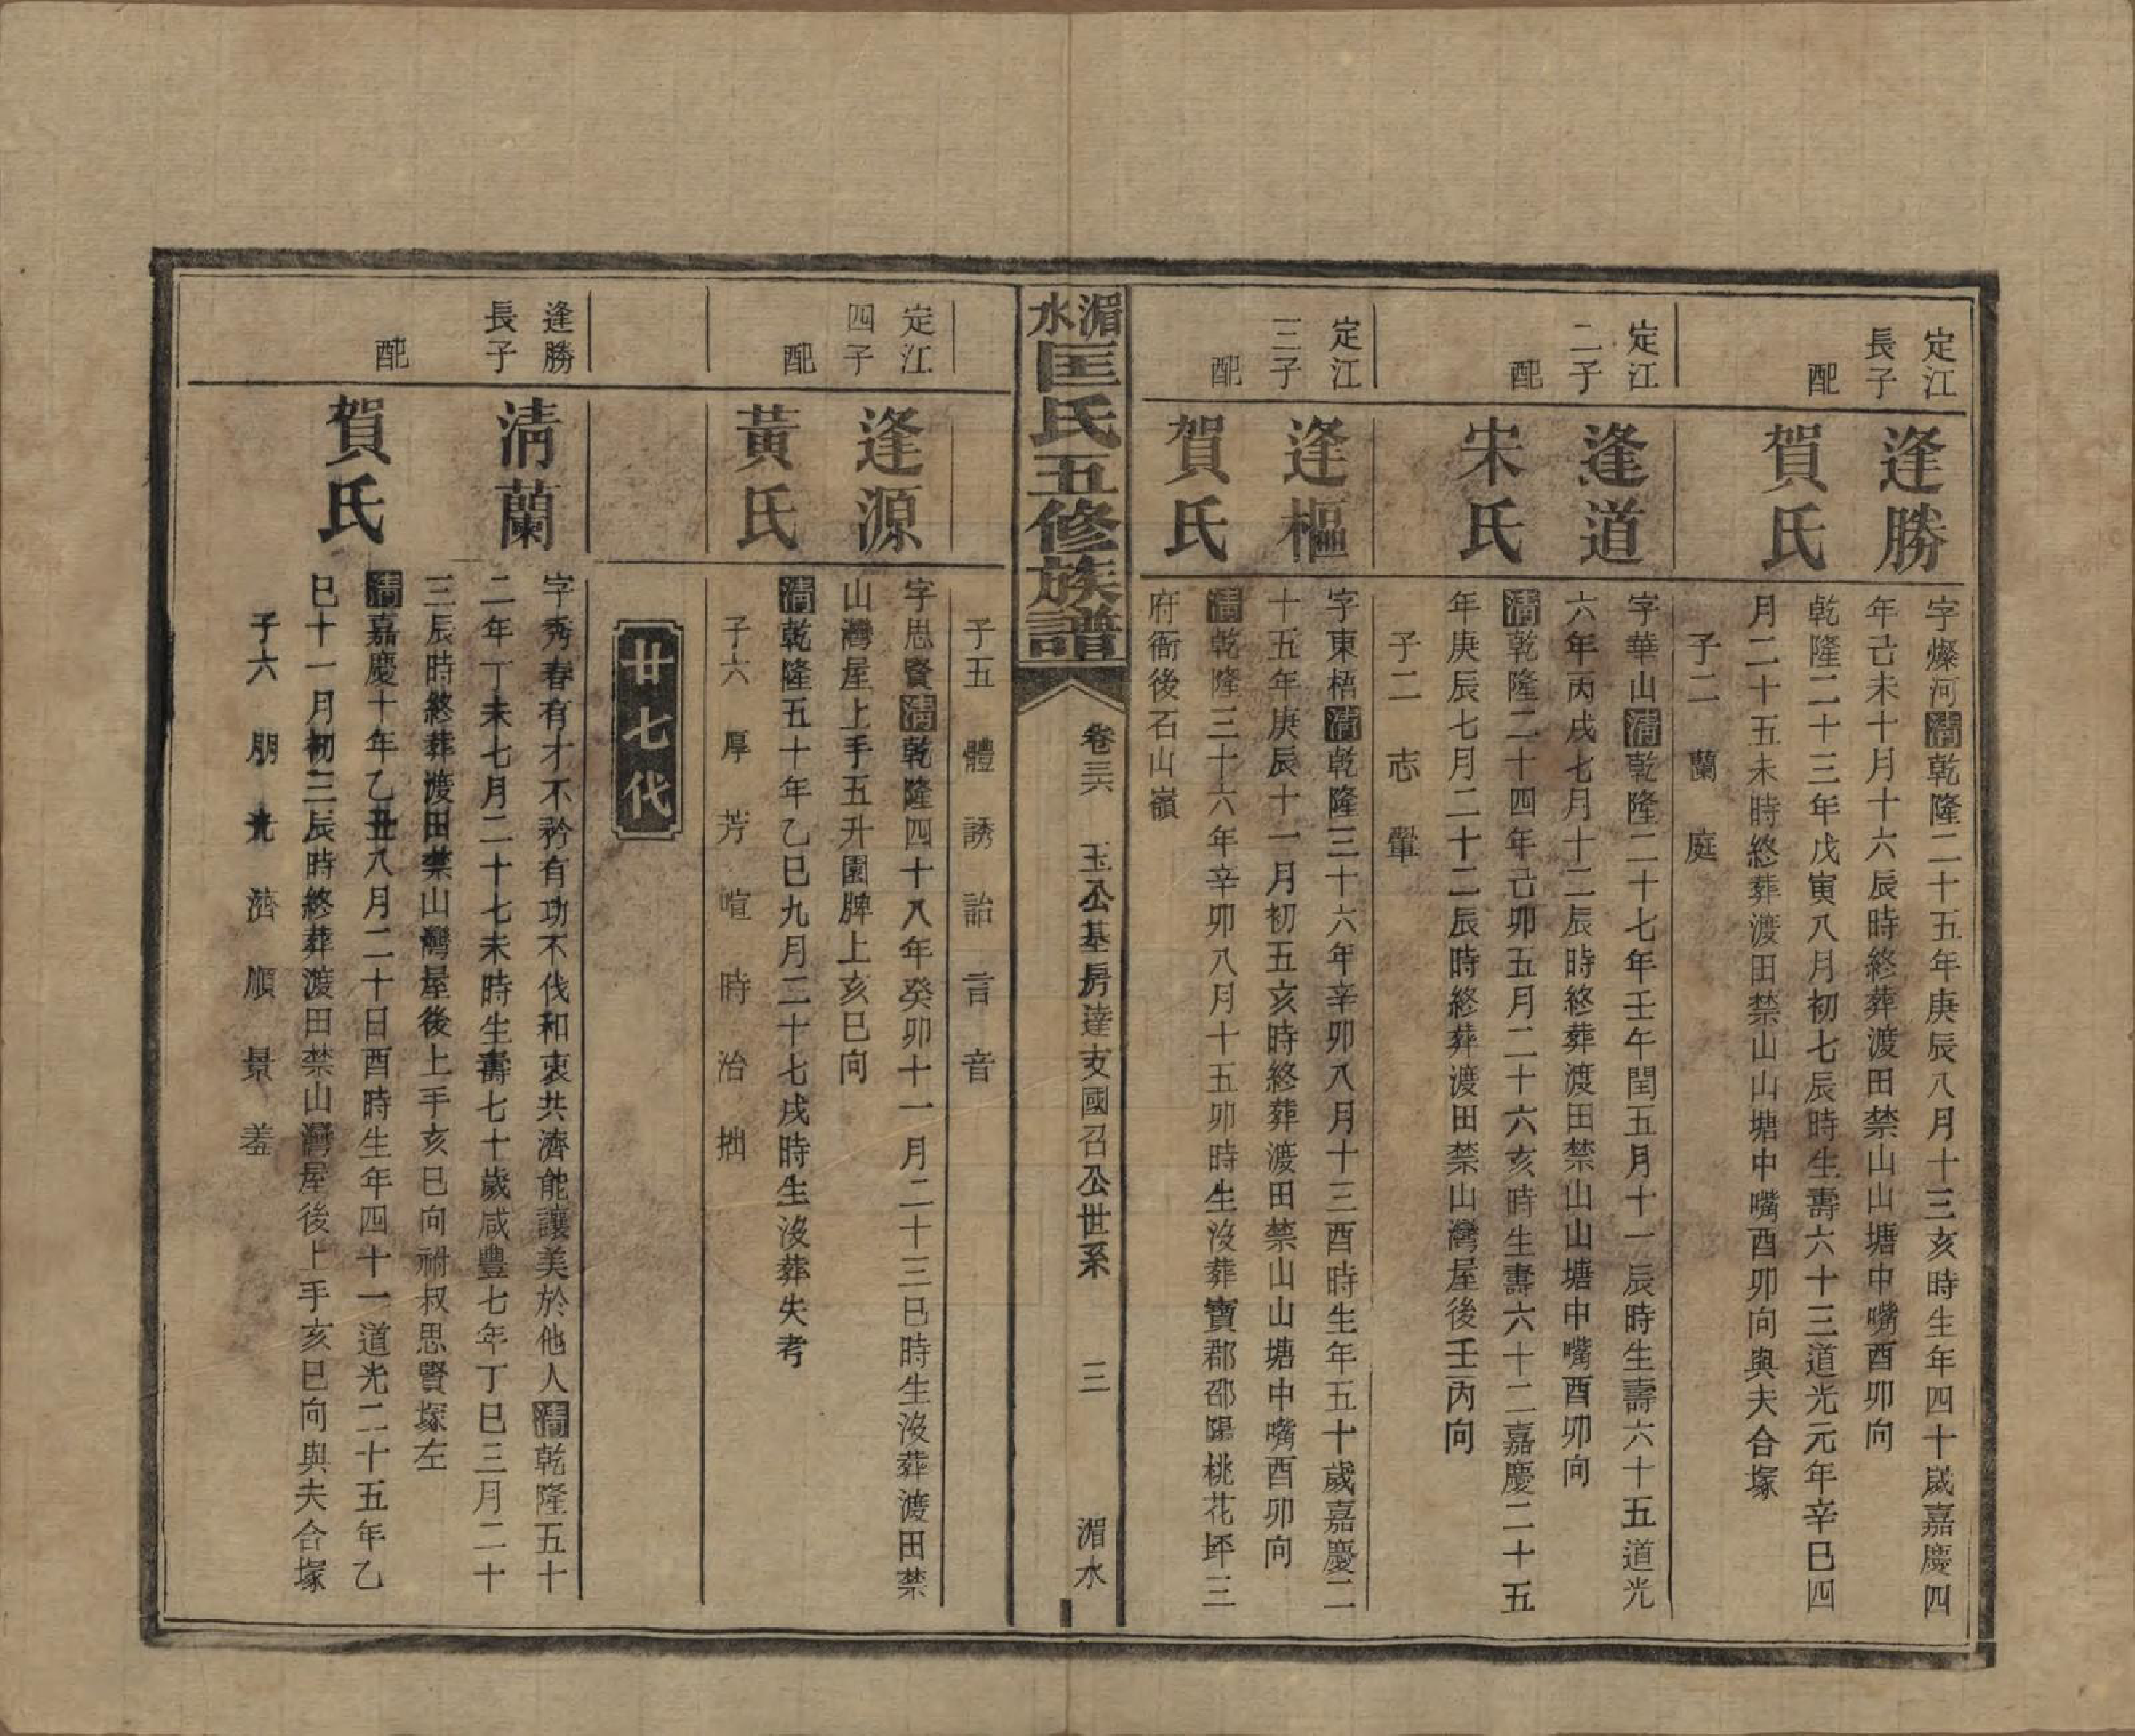 定江
長子
逢勝
字燦河清乾隆二十五年庚辰八月十三亥時生年四十歲嘉慶四
年己未十月十六辰時終葬渡田禁山山塘中嘴酉卯向
配
賀氏
乾隆二十三年戊寅八月初七辰時生壽六十三道光元年辛巳四
月二十五未時終葬渡田禁山山塘中嘴酉卯向與夫合塚
子二 蘭 庭
定江
二子
逢道
字華山清乾隆二十七年壬午閏五月十一辰時生壽六十五道光
六年丙戌七月十二辰時終葬渡田禁山山塘中嘴酉卯向
配
宋氏
清乾隆二十四年己卯五月二十六亥時生壽六十二嘉慶二十五
年庚辰七月二十二辰時終葬渡田禁山灣屋後壬丙向
子二 志 鞏
定江
三子
逢樞
字東梧清乾隆三十六年辛卯八月十三酉時生年五十歲嘉慶二
十五年庚辰十一月初五亥時終葬渡田禁山山塘中嘴酉卯向
配
賀氏
清乾隆三十六年辛卯八月十五卯時生沒葬寶郡邵陽桃花坪三
府衙後石山嶺
湄水匡氏五修族譜
卷三六 玉公基房達支國召公世系 三 湄水
子五 體 誘 詒 言 音
定江
四子
逢源
字思賢清乾隆四十八年癸卯十一月二十三巳時生沒葬渡田禁
山灣屋上手五升園脾上亥巳向
配
黃氏
清乾隆五十年乙巳九月二十七戌時生沒葬失考
子六 厚 芳 喧 時 治 拙
廿七代
逢勝
長子
清蘭
字秀春有才不矜有功不伐和衷共濟能讓美於他人清乾隆五十
二年丁未七月二十七未時生壽七十歲咸豐七年丁巳三月二十
三辰時終葬渡田禁山灣屋後上手亥巳向祔叔思賢塚左
配
賀氏
清嘉慶十年乙丑八月二十日酉時生年四十一道光二十五年乙
巳十一月初三辰時終葬渡田禁山灣屋後上手亥巳向與夫合塚
子六 朋 光 濟 順 景 羞